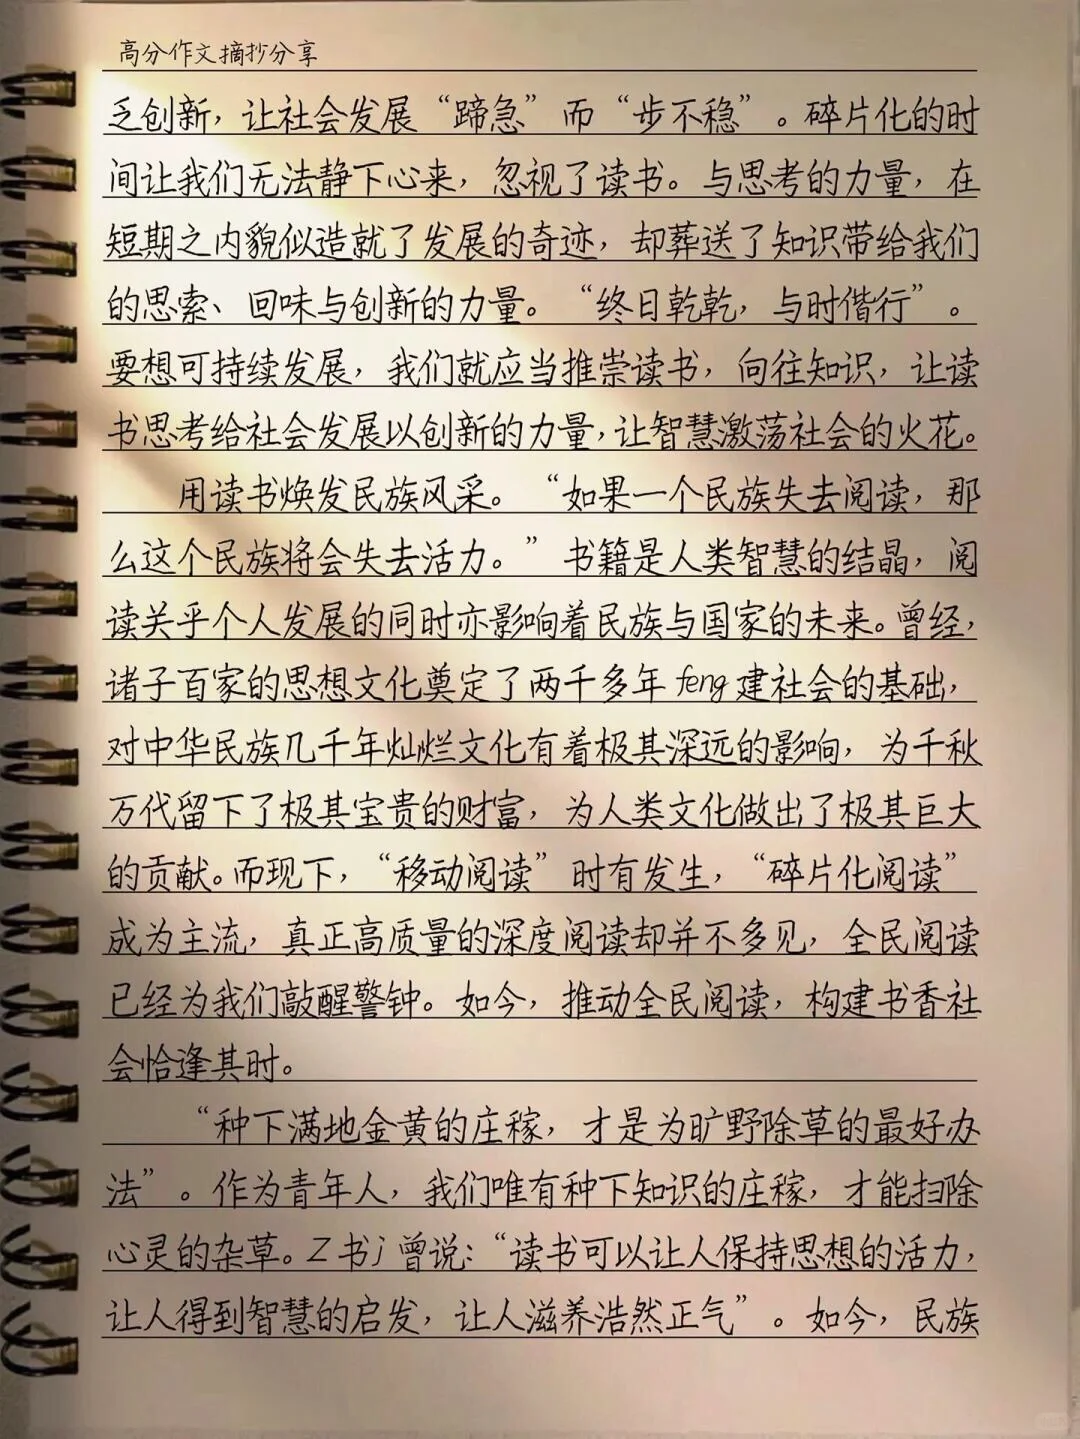 高分作文摘抄分享
乏创新，让社会发展“蹄急”而“步不稳”。碎片化的时
间让我们无法静下心来，忽视了读书。与思考的力量，在
短期之内貌似造就了发展的奇迹，却葬送了知识带给我们
的思索、回味与创新的力量。“终日乾乾，与时偕行”。
要想可持续发展，我们就应当推崇读书，向往知识，让读
书思考给社会发展以创新的力量，让智慧激荡社会的火花。
用读书焕发民族风采。“如果一个民族失去阅读，那
么这个民族将会失去活力。”书籍是人类智慧的结晶，阅
读关乎个人发展的同时亦影响着民族与国家的未来。曾经，
诸子百家的思想文化奠定了两千多年feng建社会的基础，
对中华民族几千年灿烂文化有着极其深远的影响，为千秋
万代留下了极其宝贵的财富，为人类文化做出了极其巨大
的贡献。而现下，“移动阅读”时有发生，“碎片化阅读”
成为主流，真正高质量的深度阅读却并不多见，全民阅读
已经为我们敲醒警钟。如今，推动全民阅读，构建书香社
会恰逢其时。
“种下满地金黄的庄稼，才是为旷野除草的最好办
法”。作为青年人，我们唯有种下知识的庄稼，才能扫除
心灵的杂草。Z书j曾说：“读书可以让人保持思想的活力，
让人得到智慧的启发，让人滋养浩然正气”。如今，民族